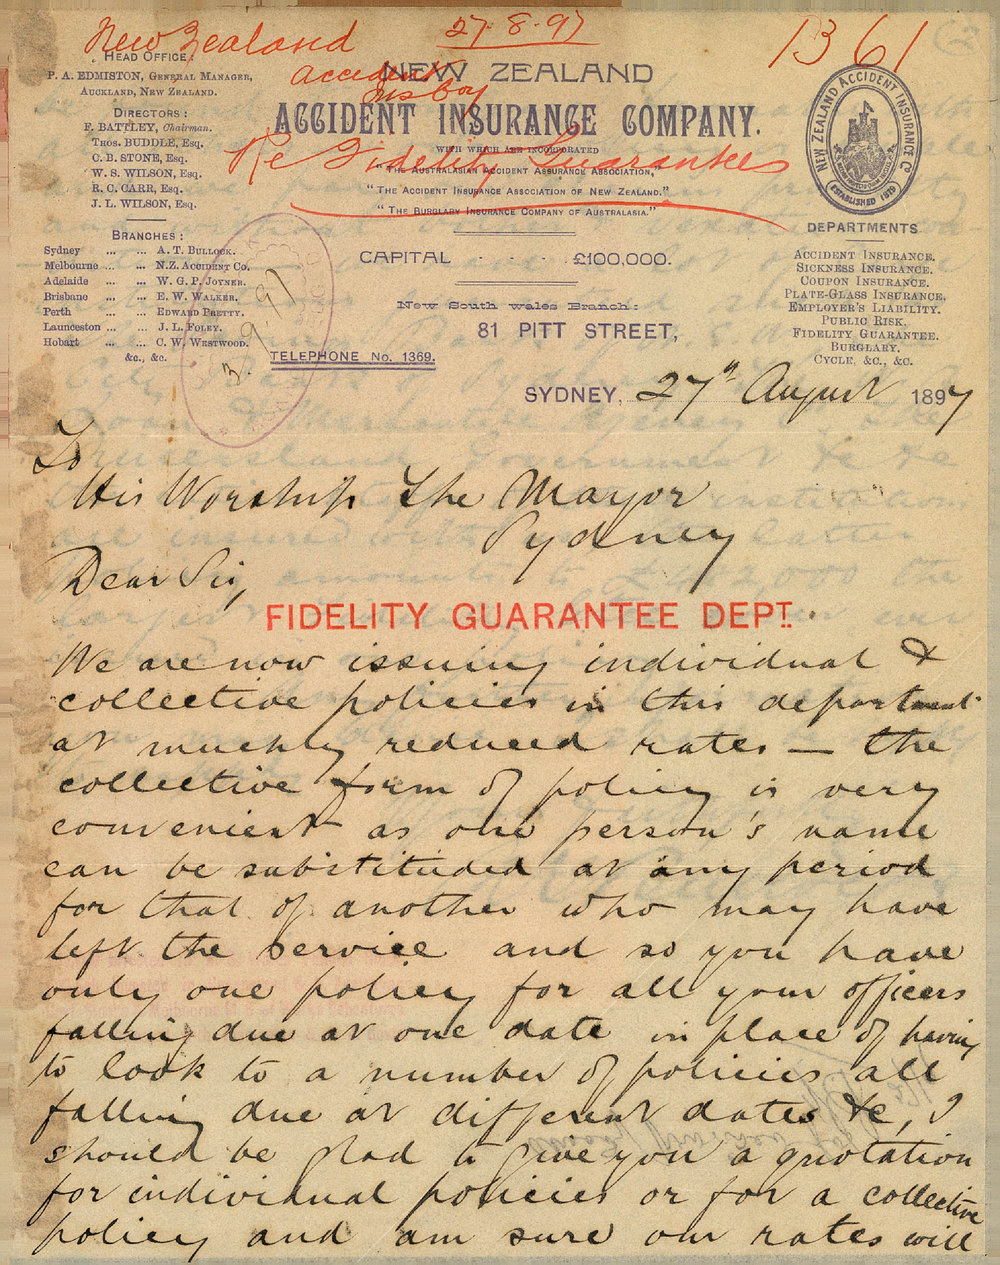 New Zealand
Accident
Ins Coy
27-8-97
1361
Re Fidelity Guarantees
HEAD OFFICE:
P. A. EDMISTON, GENERAL MANAGER,
AUCKLAND, NEW ZEALAND.
DIRECTORS:
F. BATTLEY, Chairman.
THOS. BUDDLE, ESQ.
C. B. STONE, ESQ.
W. S. WILSON, ESQ.
R. C. CARR, ESQ.
J. L. WILSON, ESQ.
BRANCHES:
Sydney ... ... A. T. BULLOCK.
Melbourne ... ... N.Z. ACCIDENT CO.
Adelaide ... ... W. G. P. JOYNER.
Brisbane ... ... E. W. WALKER.
Perth ... ... EDWARD PRETTY.
Launceston ... ... J. L. FOLEY.
Hobart ... ... C. W. WESTWOOD.
&c., &c.
3.9.97
NEW ZEALAND
ACCIDENT INSURANCE COMPANY.
WITH WHICH ARE INCORPORATED
"THE AUSTRALASIAN ACCIDENT ASSURANCE ASSOCIATION,"
"THE ACCIDENT INSURANCE ASSOCIATION OF NEW ZEALAND."
"THE BURGLARY INSURANCE COMPANY OF AUSTRALASIA."
CAPITAL - - - - £100,000.
New South Wales Branch:
81 PITT STREET,
TELEPHONE No. 1369.
NEW ZEALAND ACCIDENT INSURANCE Co
ESTABLISHED 1879
DEPARTMENTS
ACCIDENT INSURANCE.
SICKNESS INSURANCE.
COUPON INSURANCE.
PLATE-GLASS INSURANCE.
EMPLOYER'S LIABILITY.
PUBLIC RISK.
FIDELITY GUARANTEE.
BURGLARY.
CYCLE, &C., &C.
SYDNEY, 27th August 1897
To
His Worship The Mayor
Sydney
Dear Sir,
FIDELITY GUARANTEE DEPT.
We are now issuing individual &
collective policies in this department
at muchly reduced rates — the
collective form of policy is very
convenient as one person's name
can be substituded at any period
for that of another who may have
left the service and so you have
only one policy for all your officers
falling due at one date in place of having
to look to a number of policies all
falling due at different dates &c, I
should be glad to give you a quotation
for individual policies or for a collective
policy and am sure our rates will